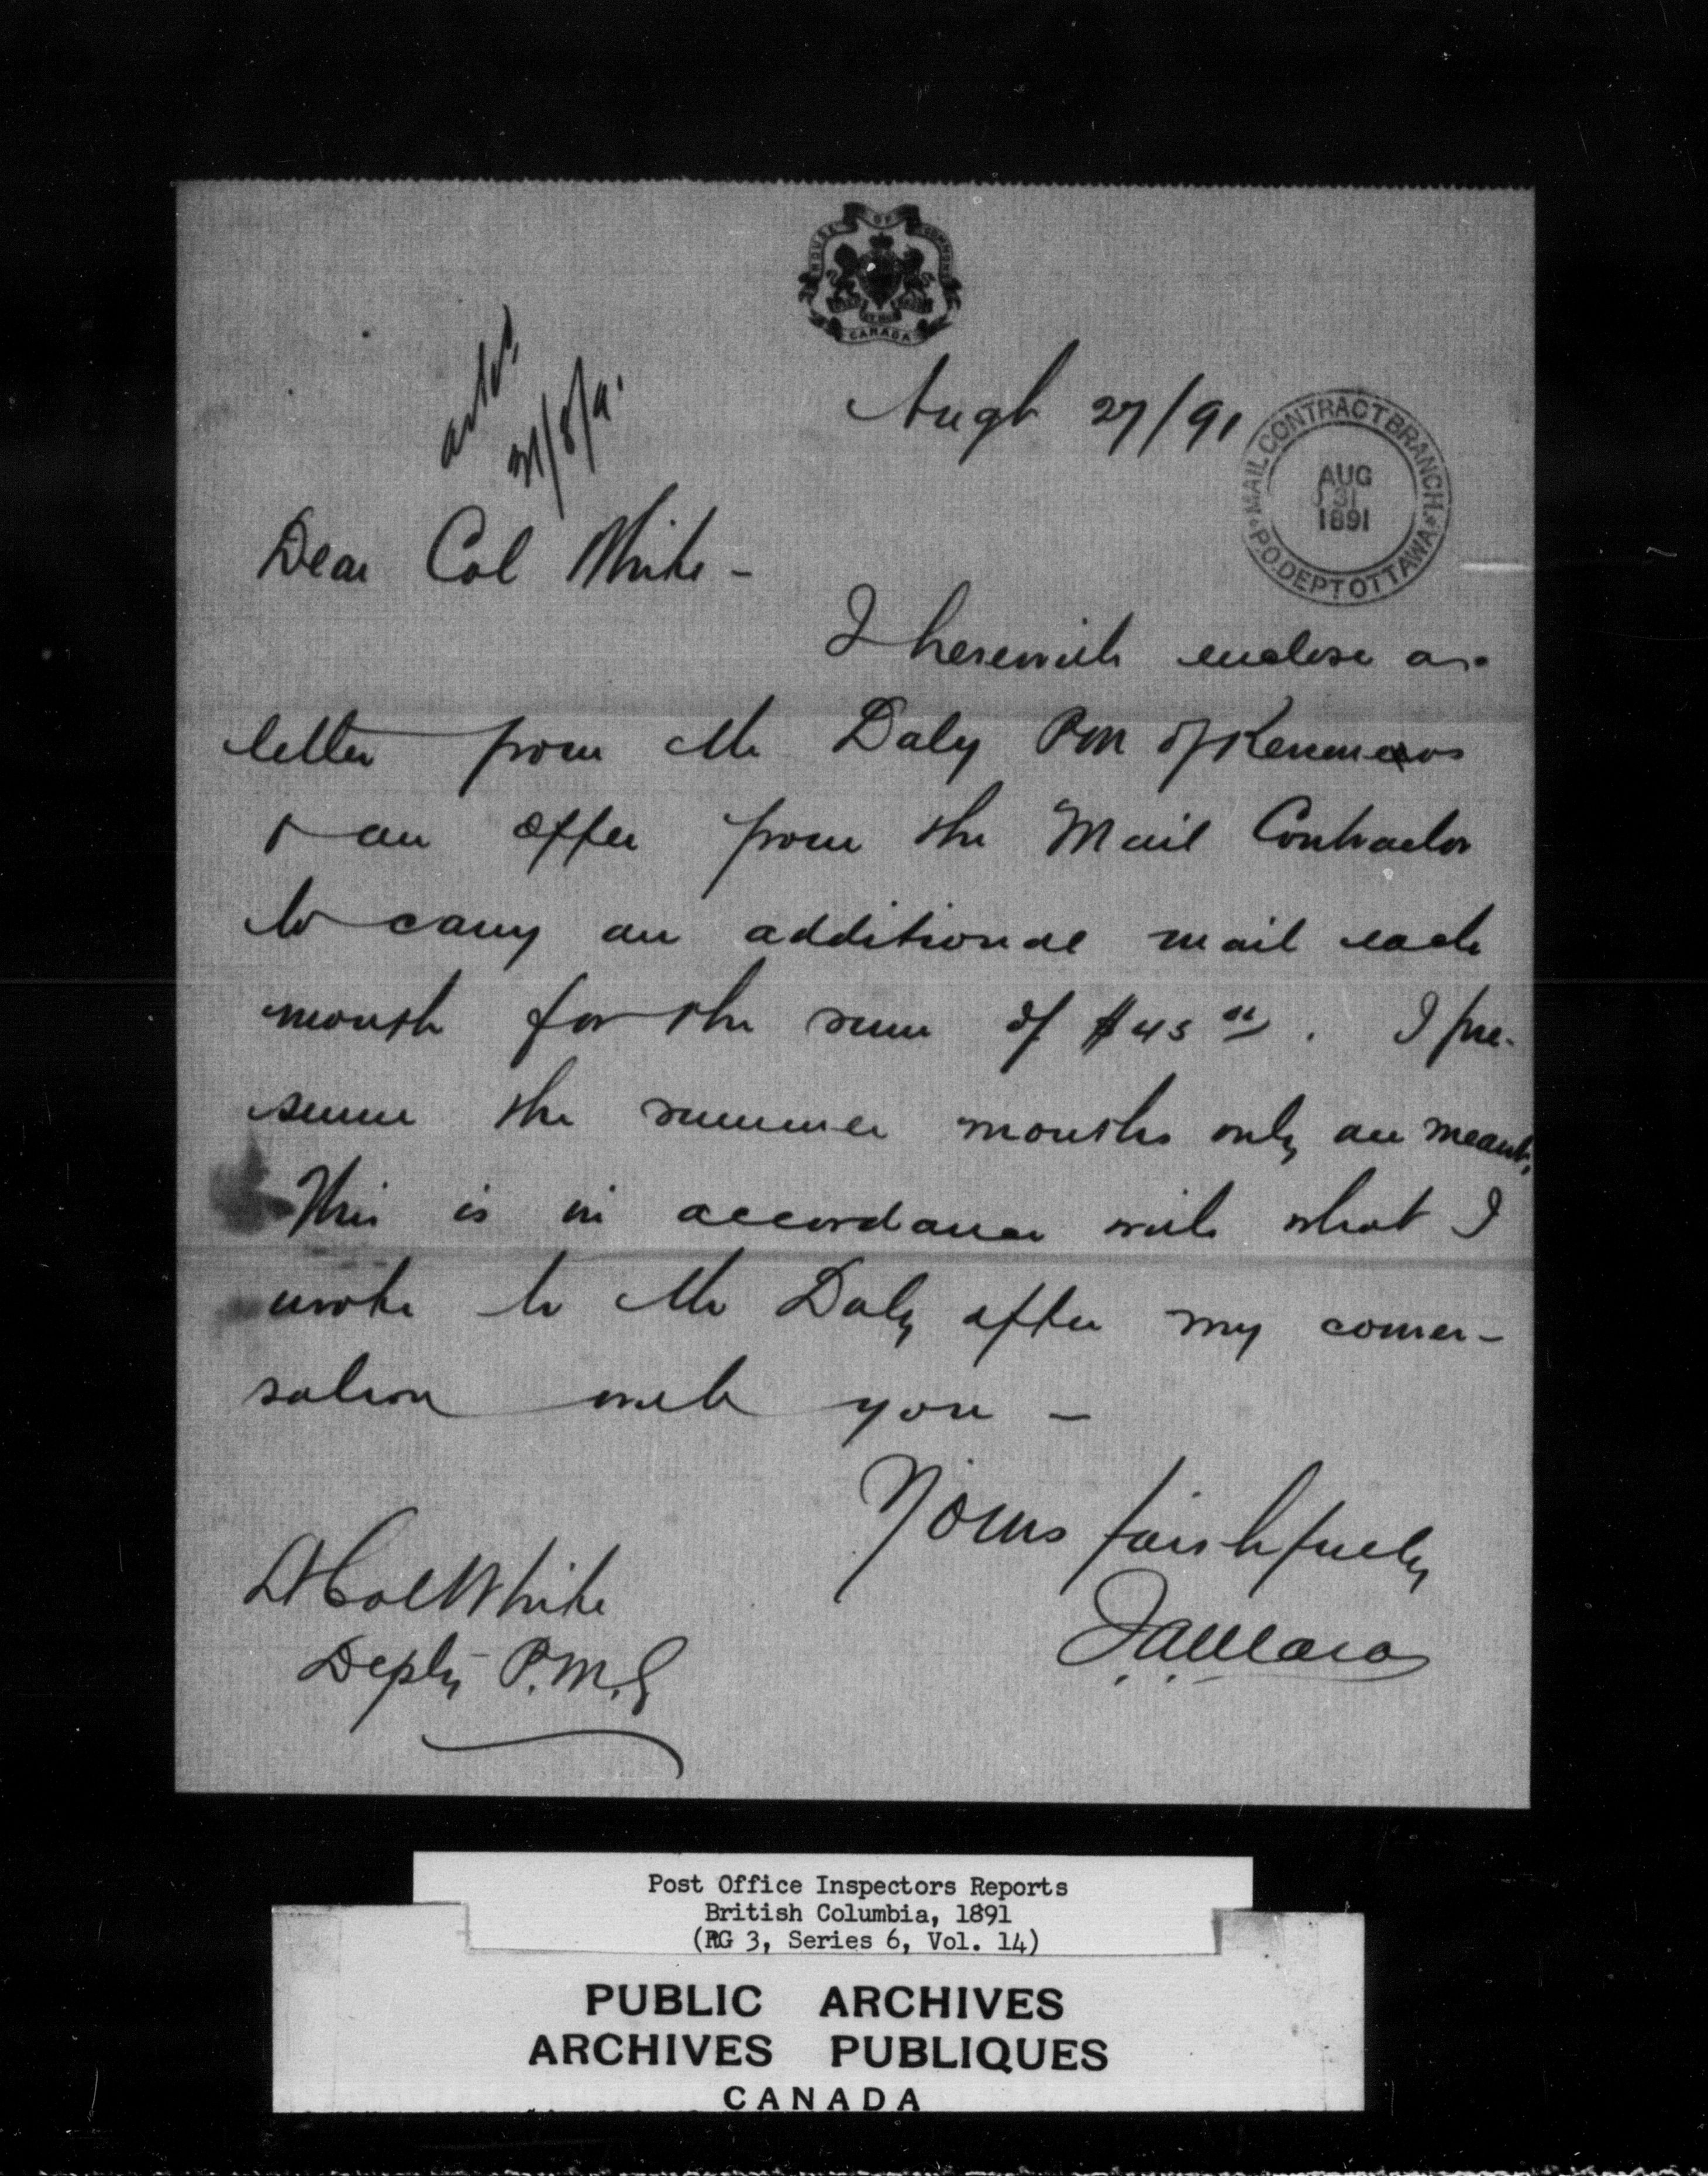 HOUSE OF COMMONS
CANADA
31/8/91
Augt 27/91
MAIL CONTRACT BRANCH
P.O. DEPT OTTAWA
AUG
31
1891
Dear Col White -
I herewith enclose a
letter from Mr Daly PM of Keremeos
& an offer from the Mail Contractor
to carry an additional mail each
month for the sum of $45 00. I pre-
sume the summer months only are meant.
This is in accordance with what I
wrote to Mr Daly after my conver-
sation with you -
Yours faithfully
J.A. Mara
Lt Col White
Depty P.M.G
Post Office Inspectors Reports
British Columbia, 1891
(RG 3, Series 6, Vol. 14)
PUBLIC ARCHIVES
ARCHIVES PUBLIQUES
CANADA